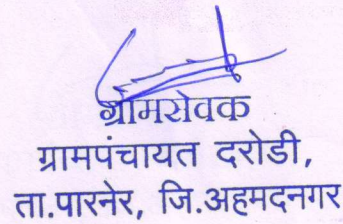 ग्रामसेवक
ग्रामपंचायत दरोडी,
ता.पारनेर, जि.अहमदनगर